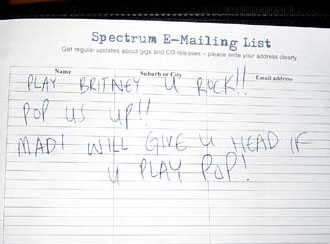 Spectrum E-Mailing List
Get regular updates about gigs and CD releases – please write your address clearly
Name Suburb or City Email address
PLAY BRITNEY U ROCK!!
POP US UP!!
MADI WILL GIVE U HEAD IF
U PLAY POP!